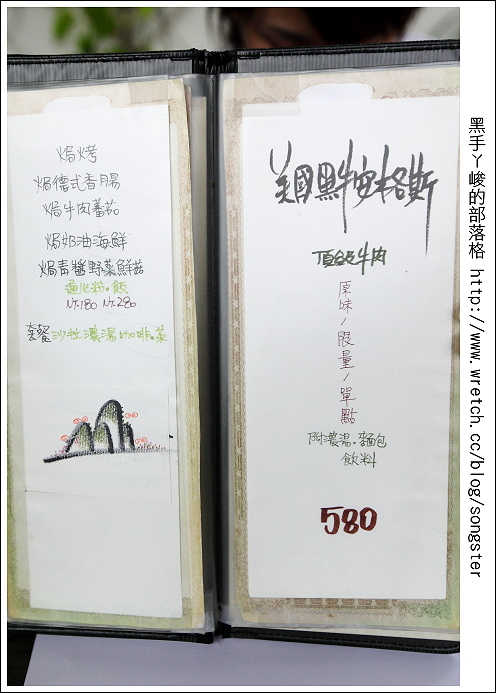 焗烤
焗德式香腸
焗牛肉蕃茄
焗奶油海鮮
焗青醬野菜鮮菇
通心粉.飯
NT.180 NT.280
套餐 沙拉濃湯咖啡.茶
美國黑牛安格斯
頂級牛肉
原味/限量/單點
附濃湯.麵包
飲料
580
黑手ㄚ峻的部落格 http://www.wretch.cc/blog/songster